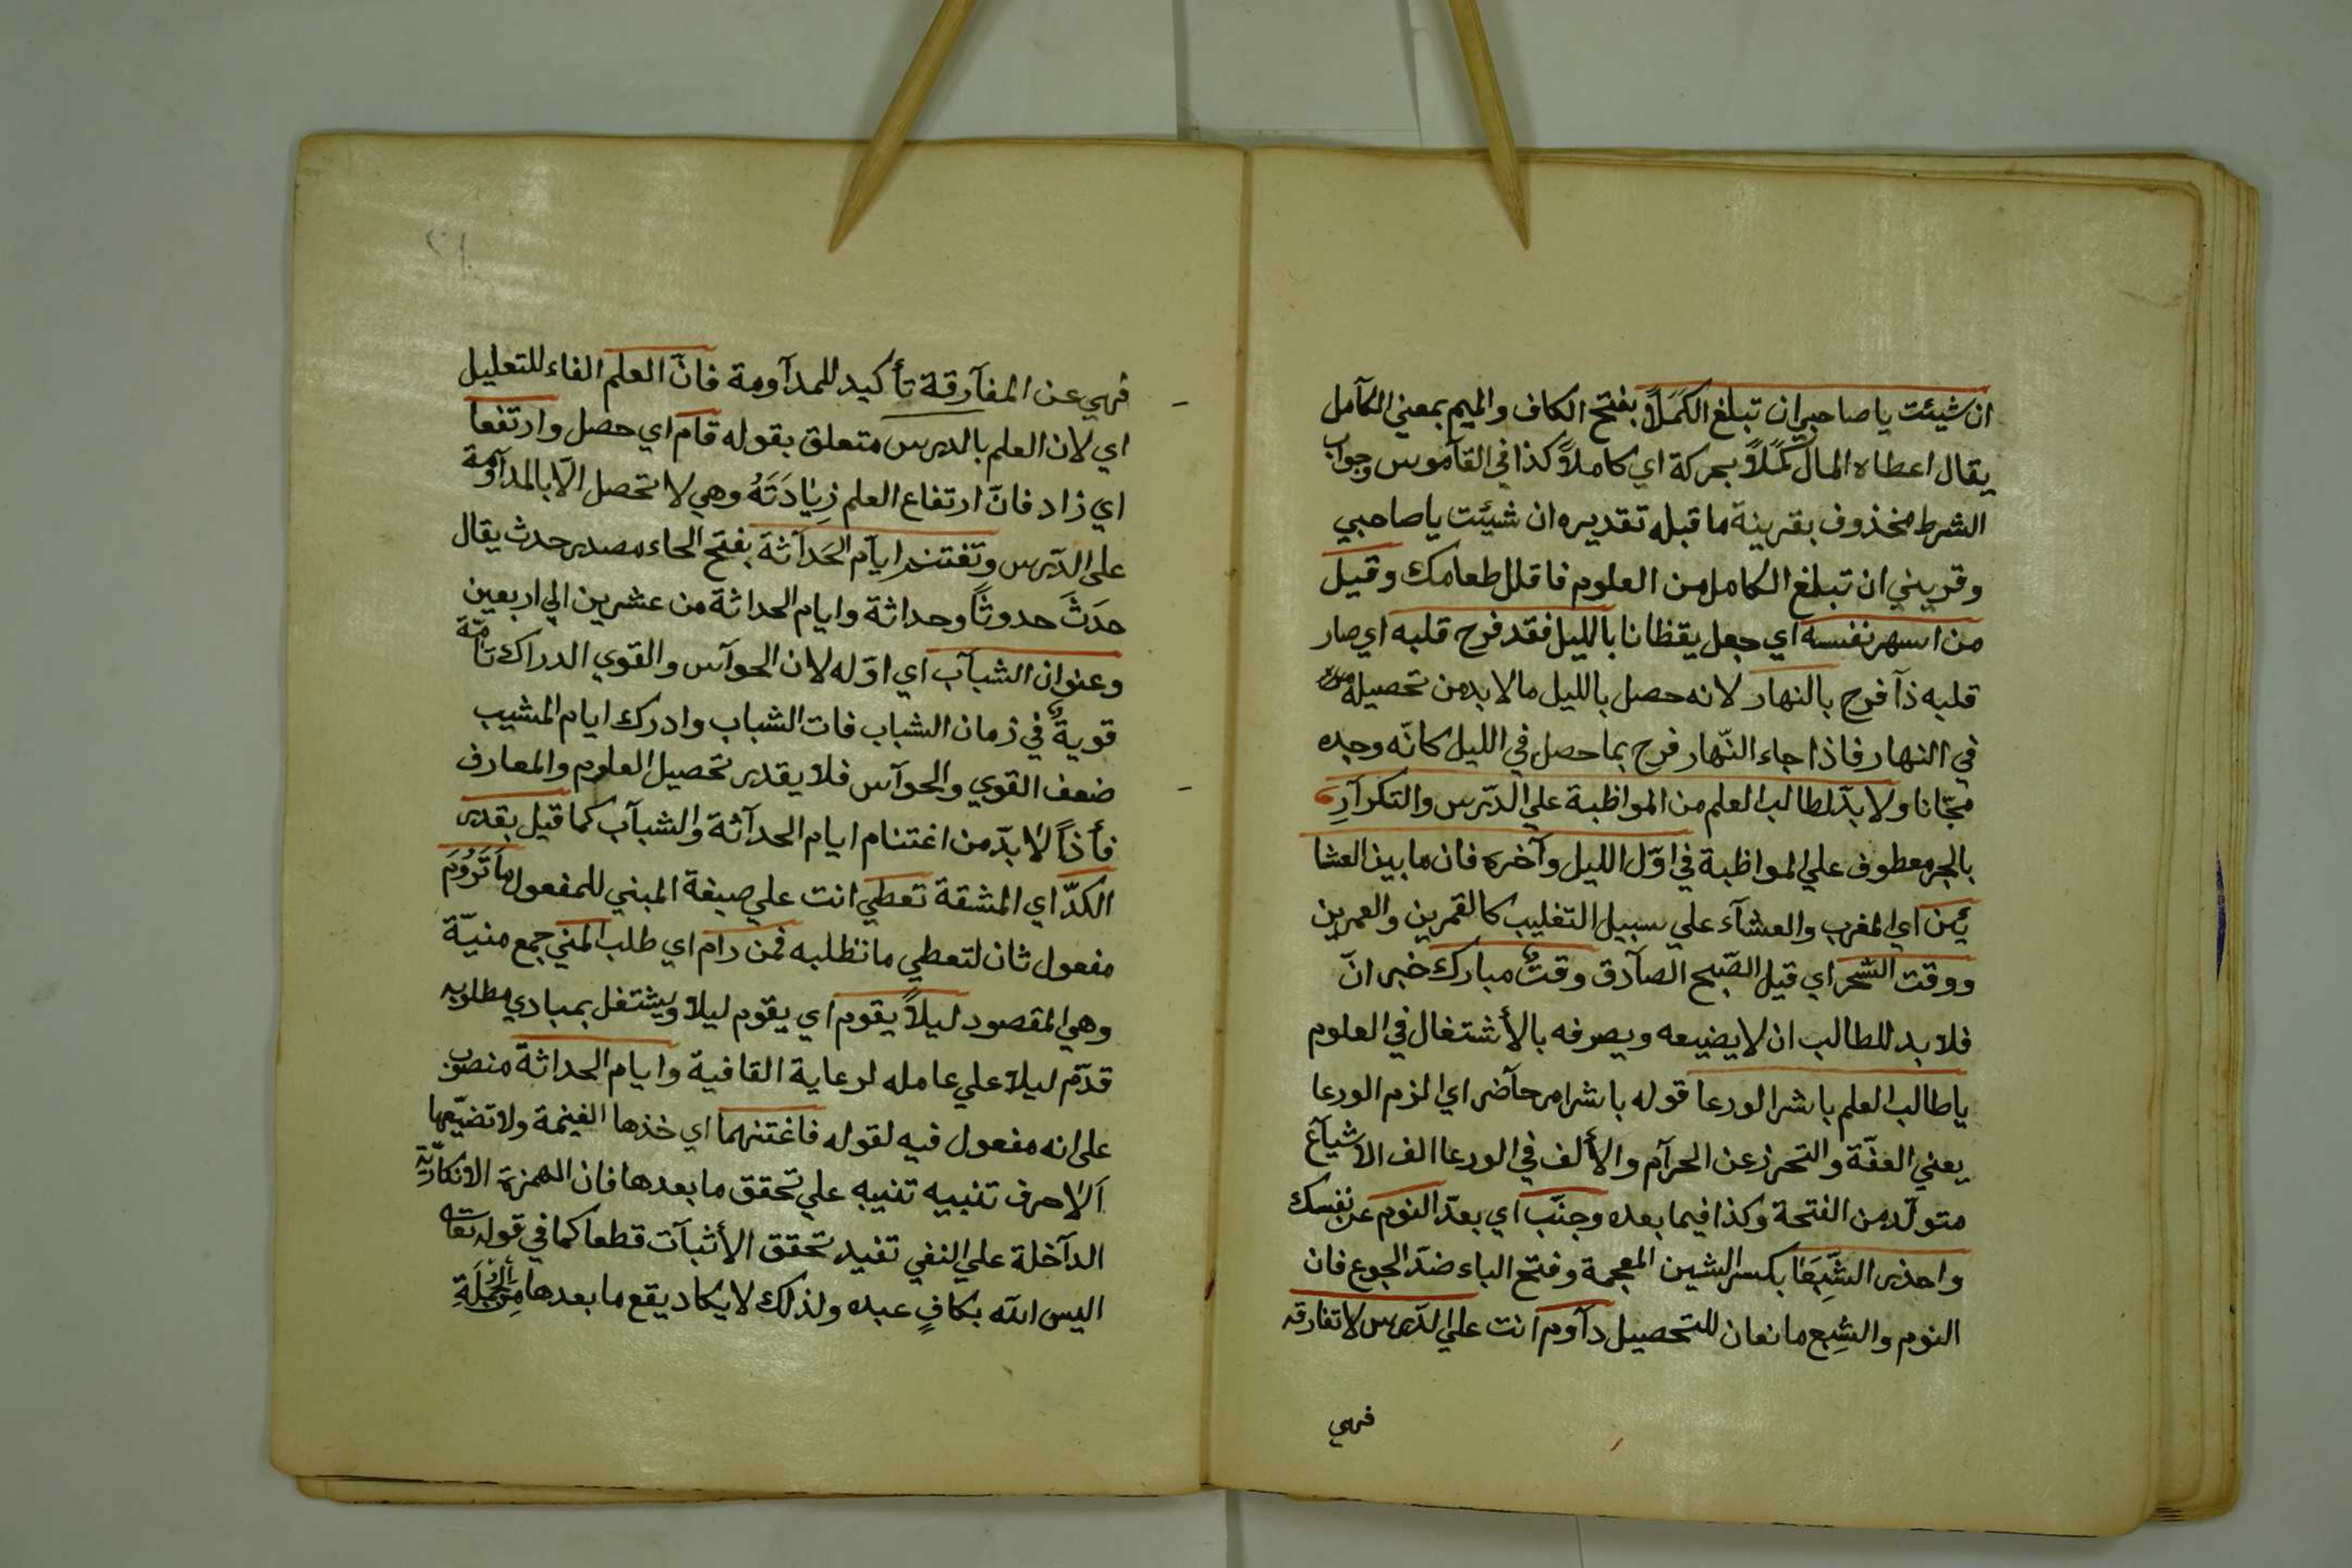 ان شيئت يا صاحبي ان تبلغ الكَمَلاً بفتح الكاف والميم بمعني الكآمل
يقال اعطاه المال كَمَلاً بحركة اي كاملاً كذا في القآموس وجواب
الشرط مخذوف بقرينة ما قبله تقديره ان شيئت يا صاحبي
وقريني ان تبلغ الكامل من العلوم فاقلل طعامك وقيل
من اسهر نفسه اي جعل يقظانا بالليل فقد فرح قلبه اي صار
قلبه ذآ فرح بالنهار لانه حصل بالليل ما لا بد من تحصيله
في النهار فاذا جاء النّهار فرح بما حصل في الليل كانّه وجده
مجّانا ولا بدّ لطالب العلم من المواظبة علي الدّرس والتكرآرِ
بالجر معطوف علي المواظبة في اوّل الليل وآخره فان ما بين العشا
يْن اي المغرب والعشآء علي سبيل التغليب كالقمرين والعمرين
ووقت السّحر اي قيل الصّبح الصآدق وقتٌ مبارك خبر انّ
فلا بد للطالب ان لا يضيعه ويصرفه بالأشتغال في العلوم
يا طالب العلم باشر الورعا قوله باشر امر حآضر اي الزم الورعا
يعني العفّة والتحرز عن الحرآم والألف في الورعا الف الاشبآع
متولّد من الفتحة وكذا فيما بعده وجنّب اي بعدّ النوم عن نفسك
واحذر الشِّبَعَا بكسر الشين المعجمة وفتح الباء ضدّ الجوع فان
النوم والشِبع مانعان للتحصيل دآوم انت علي الدّرس لا تفارقه
فهي
فهي عن المفآرقة تأكيد للمدآومة فانّ العلم الفاء للتعليل
اي لان العلم بالدرس متعلق بقوله قام اي حصل وارتفعا
اي زاد فانّ ارتفاع العلم زِيَادَتَهُ وهي لا تحصل الّا بالمدآومة
علي الدّرس وتغتنم ايآم الحَدآثة بفتح الحاء مصدر حدث يقال
حدَثَ حدوثاً وحداثة وايام الحداثة من عشرين الي اربعين
وعنوان الشبآب اي اوّله لان الحوآس والقوي الدراك تامّة
قويةٌ في زمان الشباب فات الشباب وادرك ايام المشيب
ضعف القوي والحوآس فلا يقدر تحصيل العلوم والمعارف
فأذاً لا بدّ من اغتنام ايام الحدآثة والشبآب كما قيل بقدر
الكدّ اي المشقة تعطي انت علي صيغة المبني للمفعول مَا تَرُومَ
مفعول ثان لتعطي ما تطلبه فمن رام اي طلب المني جمع منيّة
وهي المقصود ليلاً يقوم اي يقوم ليلا ويشتغل بمبادي مطلوبه
قدّم ليلا علي عامله لرعاية القافية وايام الحداثة منصوب
علي انه مفعول فيه لقوله فاغتنهما اي خذها الغيمة ولا تضيّعها
اَلَا حرف تنبيه تنبيه علي تحقق ما بعدها فان الهمزة الانكاريّة
الدآخلة علي النفي تفيد تحقق الأثبآت قطعا كما في قوله تعا
اليس الله بكافٍ عبده ولذلك لا يكاد يقع ما بعدها من الجملَةِ